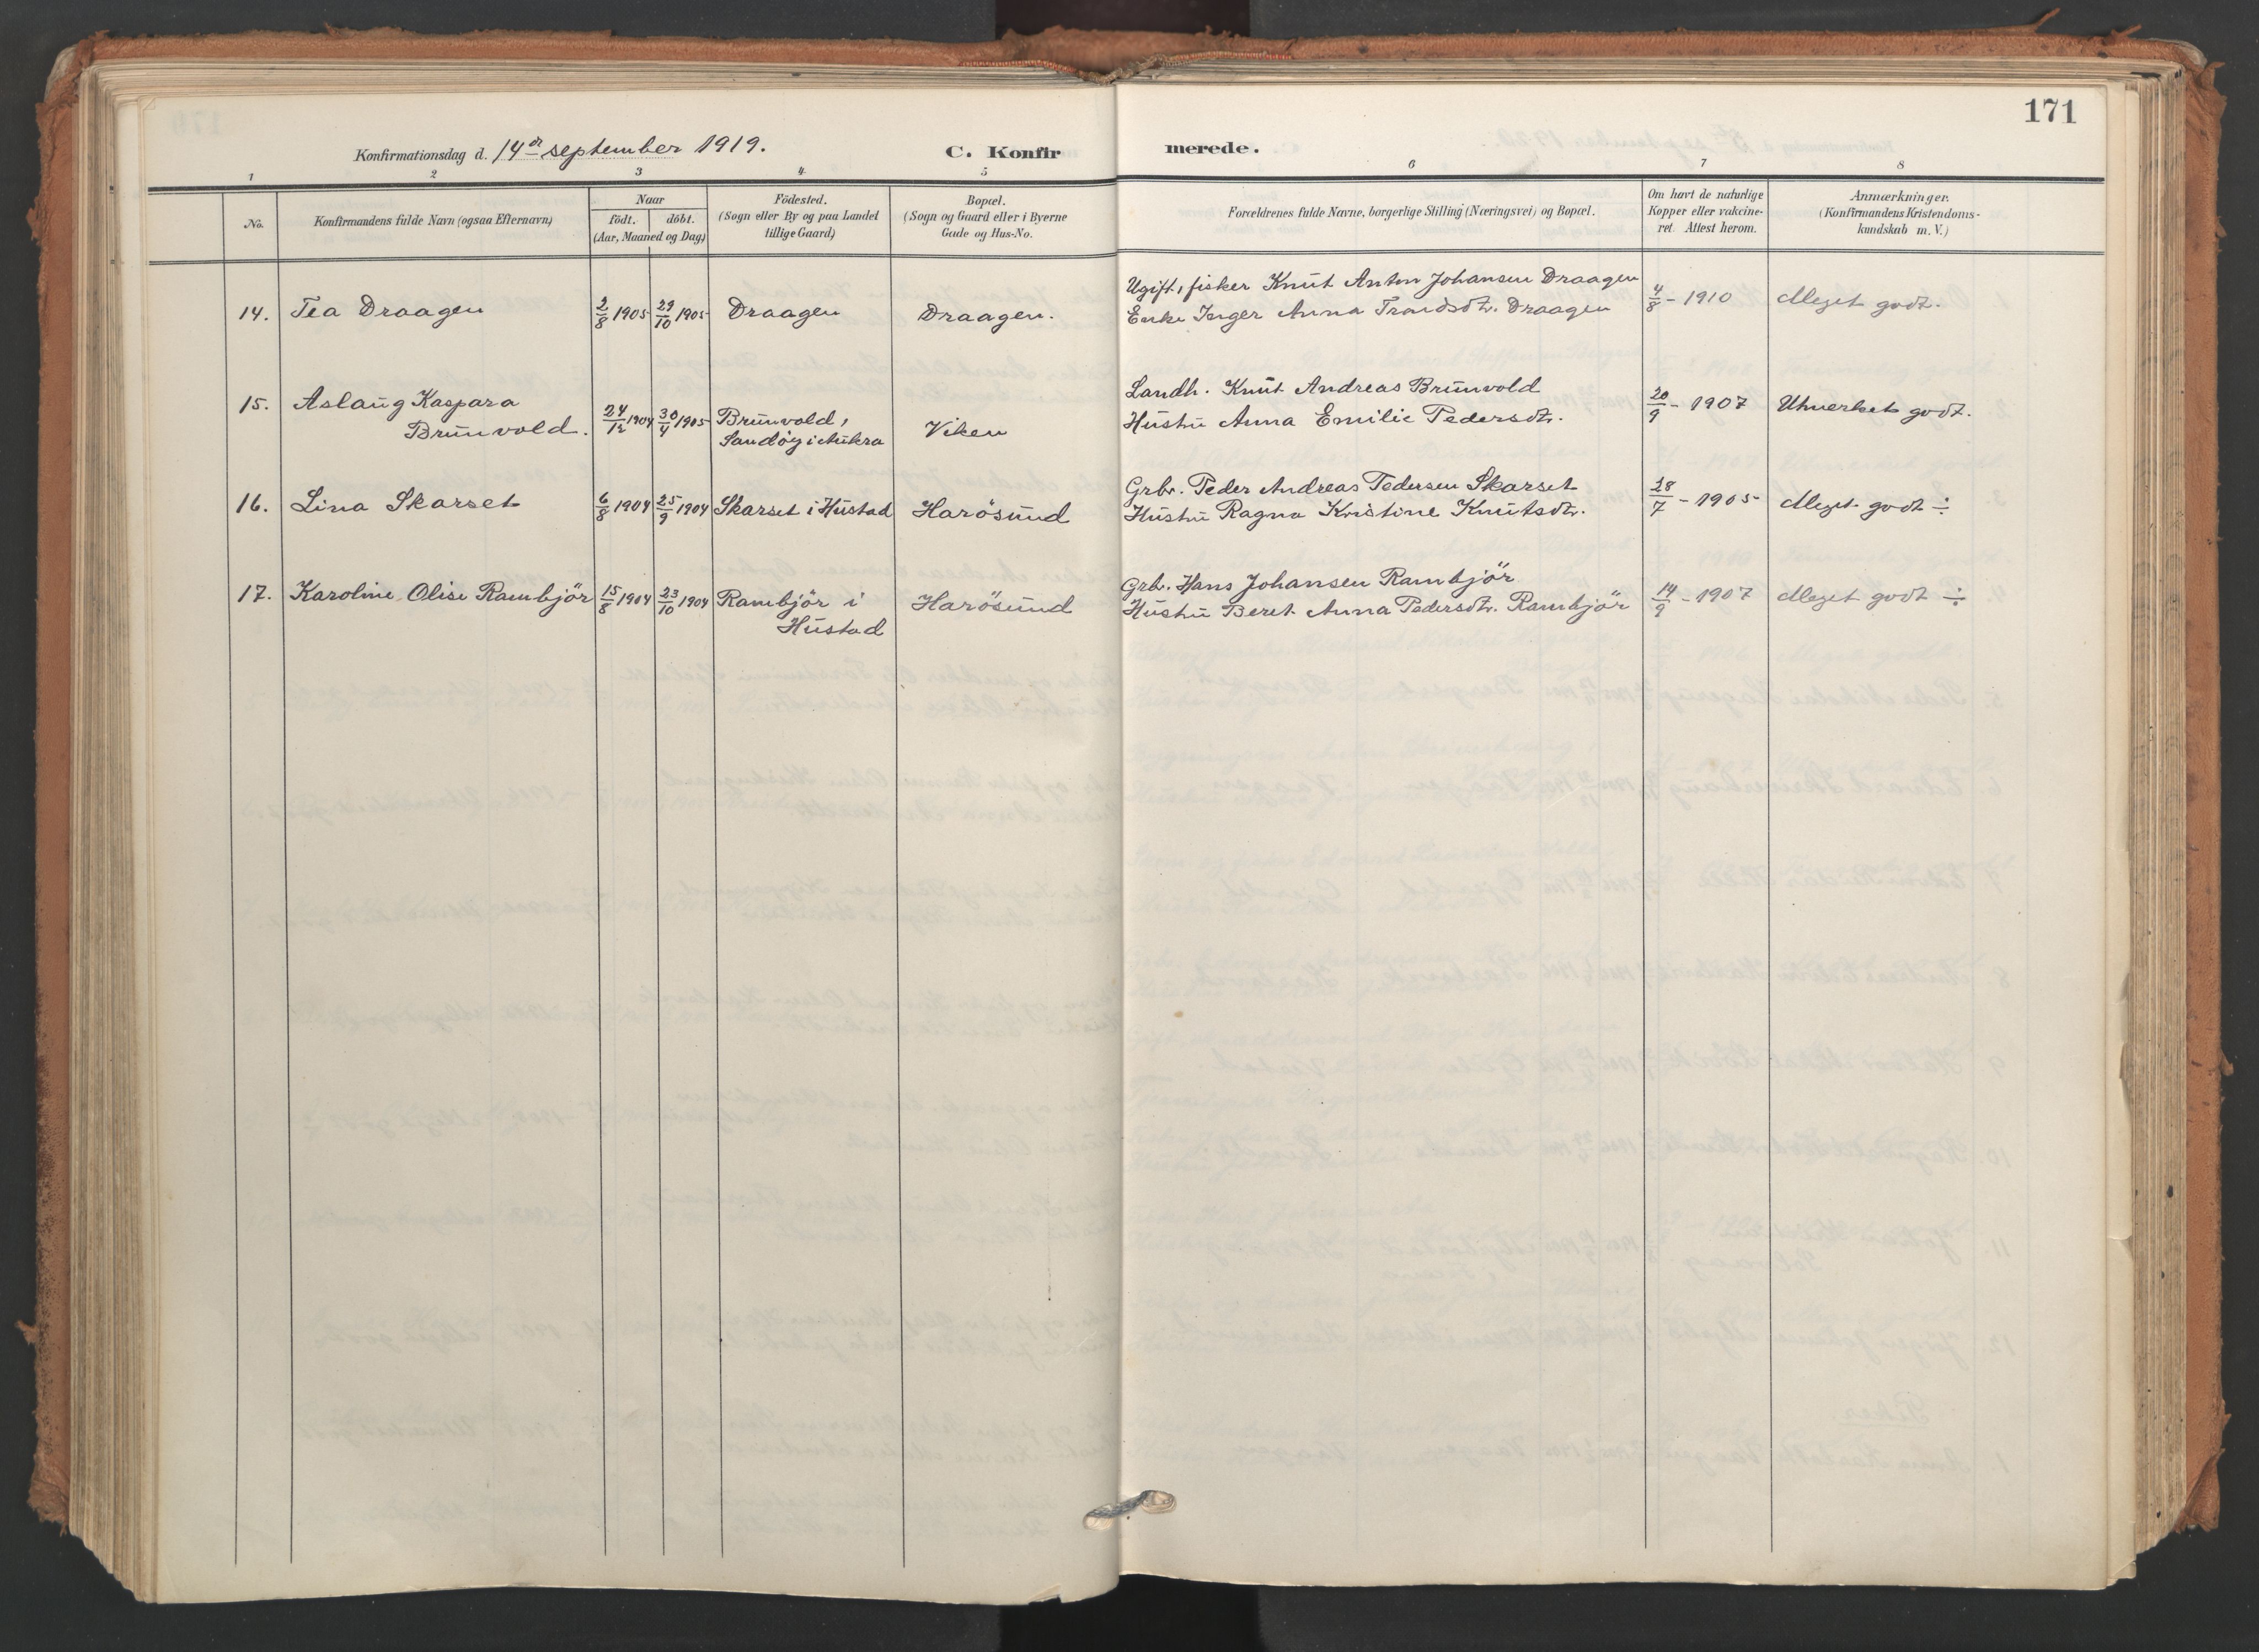 171
Konfirmationsdag d. 14de september 1919.
C. Konfirmerede.
1 2 3 4 5 6 7 8
No.
Konfirmandens fulde Navn (ogsaa Efternavn)
Naar
födt. döbt.
(Aar, Maaned og Dag)
Födested.
(Sogn eller By og paa Landet
tillige Gaard)
Bopæl.
(Sogn og Gaard eller i Byerne
Gade og Hus-No.
Forældrenes fulde Navne, borgerlige Stilling (Næringsvei) og Bopæl.
Om havt de naturlige
Kopper eller vakcine-
ret. Attest herom.
Anmærkninger.
(Konfirmandens Kristendoms-
kundskab m. V.)
14. Tea Draagen 2/8 1905 29/10 1905 Draagen Draagen.
Ugift, fisker Knut Anton Johansen Draagen
Enke Inger Anna Trondsdtr. Draagen
4/8 - 1910 Meget godt.
15. Aslaug Kaspara
Brunvold. 24/12 1904 30/4 1905 Brunvold,
Sandöy i Aukra Viken
Landh. Knut Andreas Brunvold
Hustru Anna Emilie Pedersdtr.
20/9 - 1907 Utmerket godt.
16. Lina Skarset 6/8 1904 25/9 1904 Skarset i Hustad Harösund
Grbr. Peder Andreas Pedersen Skarset
Hustru Ragna Kristine Knutsdtr.
28/7 - 1905 Meget godt ÷
17. Karoline Olise Rambjör 15/8 1904 23/10 1904 Rambjör i
Hustad Harösund
Grbr. Hans Johansen Rambjör
Hustru Beret Anna Pedersdtr. Rambjör
14/9 - 1907 Meget godt ÷